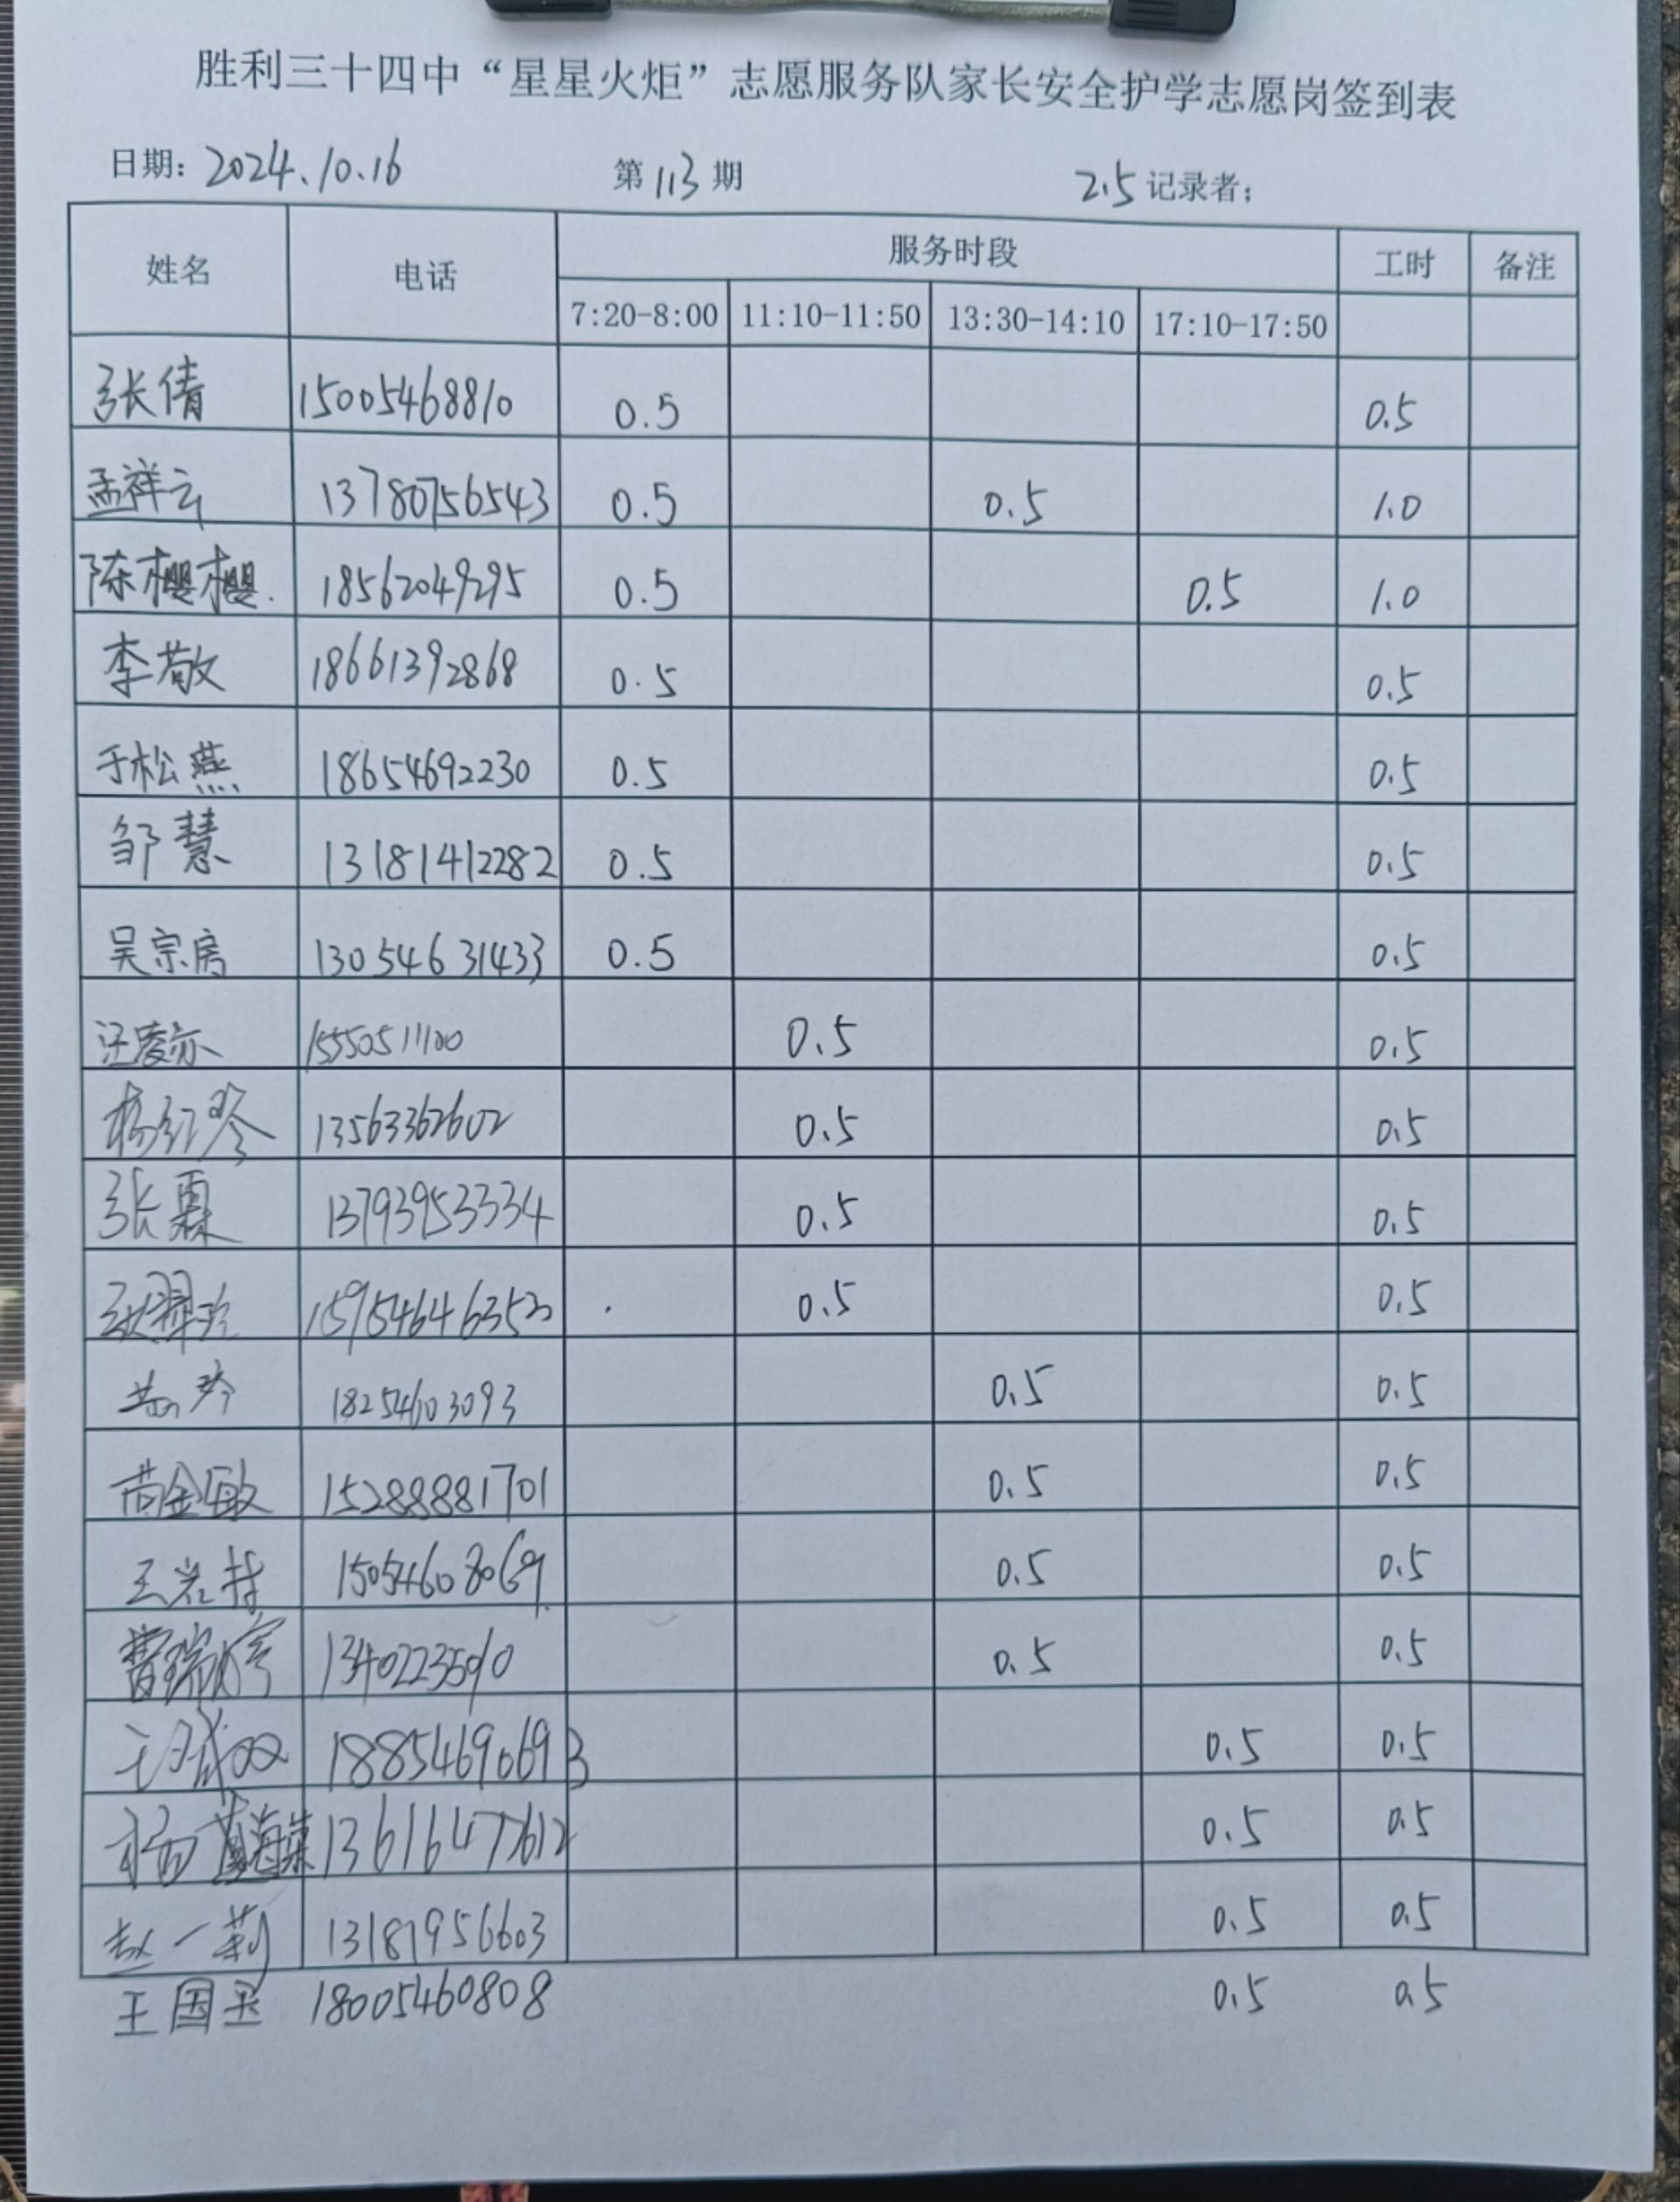 胜利三十四中“星星火炬”志愿服务队家长安全护学志愿岗签到表
日期: 2024.10.16 第 113 期 2.5 记录者;
姓名 电话 服务时段 工时 备注
7:20-8:00 11:10-11:50 13:30-14:10 17:10-17:50
张倩 15005468810 0.5 0.5
孟祥云 13780756543 0.5 0.5 1.0
陈樱樱 18562049295 0.5 0.5 1.0
李敬 18661392868 0.5 0.5
于松燕 18654692230 0.5 0.5
邹慧 13181412282 0.5 0.5
吴宗房 13054631433 0.5 0.5
15550511100 0.5 0.5
杨红琴 13563362602 0.5 0.5
张霖 13793953334 0.5 0.5
0.5 0.5
18254603093 0.5 0.5
黄金敏 15288881701 0.5 0.5
王岩梅 15054608069 0.5 0.5
曹瑞 0.5 0.5
18854690693 0.5 0.5
杨海棠 13616477612 0.5 0.5
赵一莉 13181956603 0.5 0.5
王国玉 18005460808 0.5 0.5